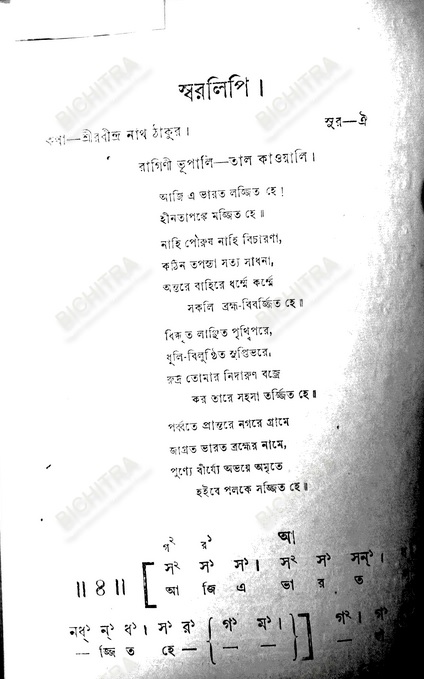 স্বরলিপি।
কথা—শ্রীরবীন্দ্র নাথ ঠাকুর। সুর—ঐ
রাগিণী ভূপালি—তাল কাওয়ালি।
আজি এ ভারত লজ্জিত হে!
হীনতাপঙ্কে মজ্জিত হে॥
নাহি পৌরুষ নাহি বিচারণা,
কঠিন তপস্যা সত্য সাধনা,
অন্তরে বাহিরে ধর্ম্মে কর্ম্মে
সকলি ব্রহ্ম-বিবর্জ্জিত হে॥
ধিক্কৃত লাঞ্ছিত পৃথ্বিপরে,
ধূলি-বিলুণ্ঠিত সুপ্তিভরে,
রুদ্র তোমার নিদারুণ বজ্রে
কর তারে সহসা তর্জ্জিত হে॥
পর্ব্বতে প্রান্তরে নগরে গ্রামে
জাগ্রত ভারত ব্রহ্মের নামে,
পুণ্যে বীর্য্যে অভয়ে অমৃতে
হইবে পলকে সজ্জিত হে॥
গ২ র১ আ
॥৪॥ [ স২ স১ স১। স২ স১ সন্১।
আ জি এ ভা র ত
নধ্১ ন্১ ধ১। স১ র১ { গ১ ম১। } ] গ২। গ১
— জ্জি ত হে — — —
BICHITRA
BICHITRA
BICHITRA
BICHITRA
BICHITRA
BICHITRA
BICHITRA
BICHITRA